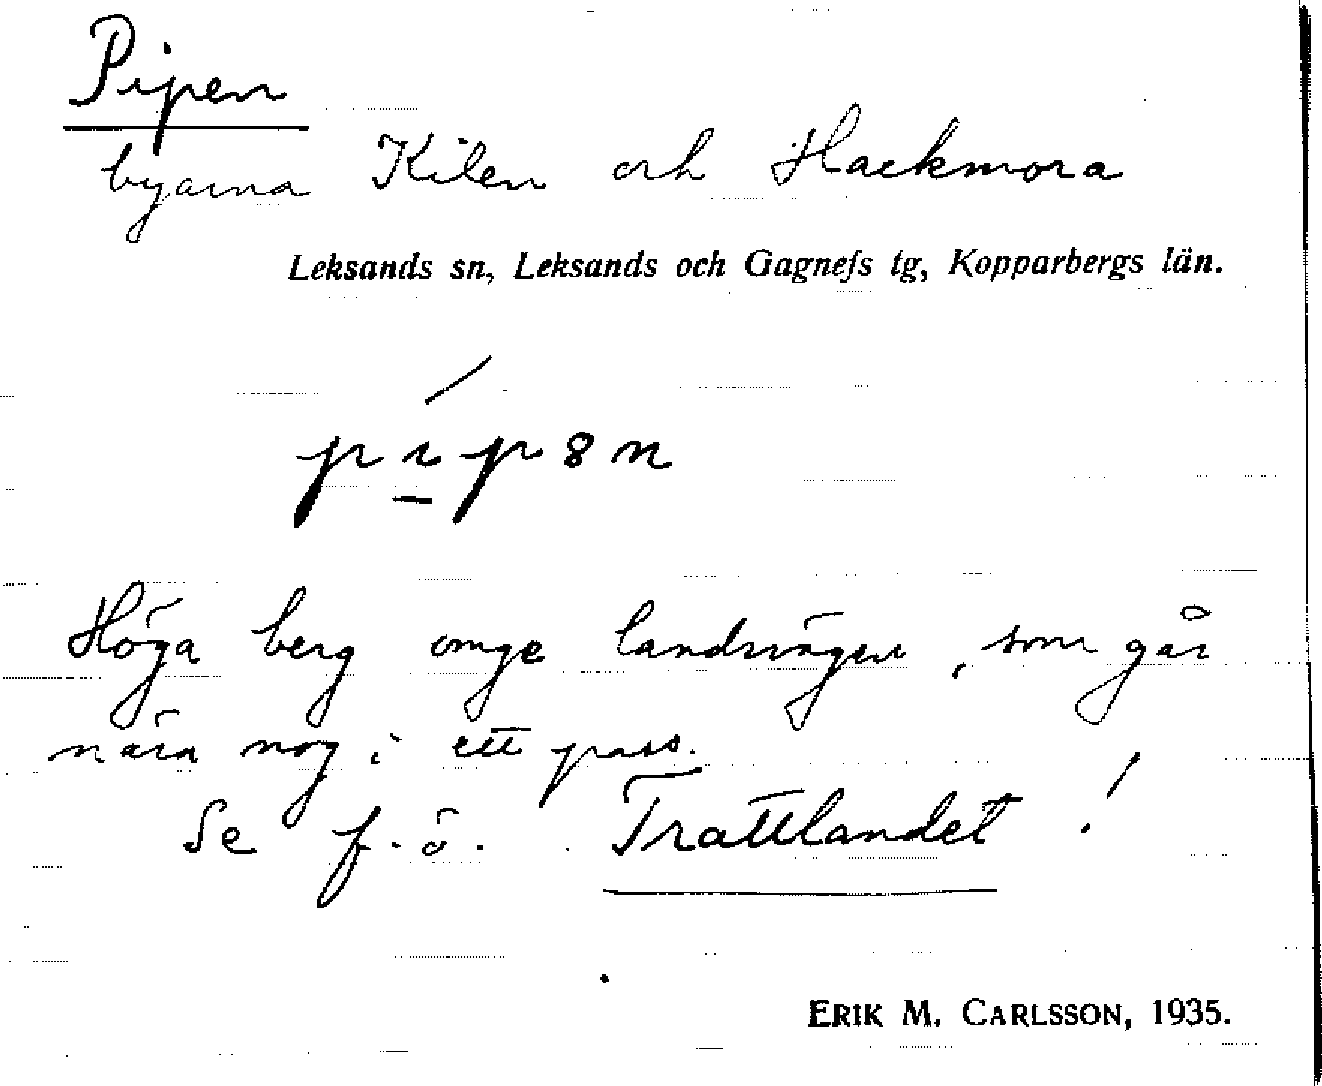 Pipen
byarna Kilen och Hackmora
Leksands sn, Leksands och Gagnefs tg, Kopparbergs län.
pi̲pən
Höga berg omge landsvägen, som går
nära nog i ett pass.
Se f.ö. Trattlandet!
ERIK M. CARLSSON, 1935.